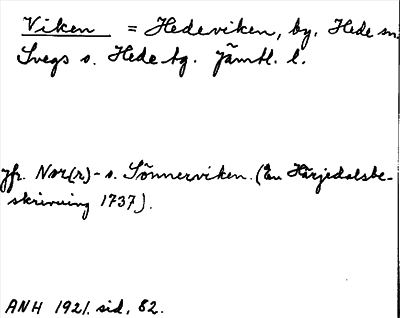 Viken = Hedeviken, by. Hede sn.
Svegs o. Hede tg. Jämtl. l.
jfr. Nor(r)- o. Sönnerviken. (En Härjedalsbe-
skrivning 1737).
ANH 1921. sid. 82.